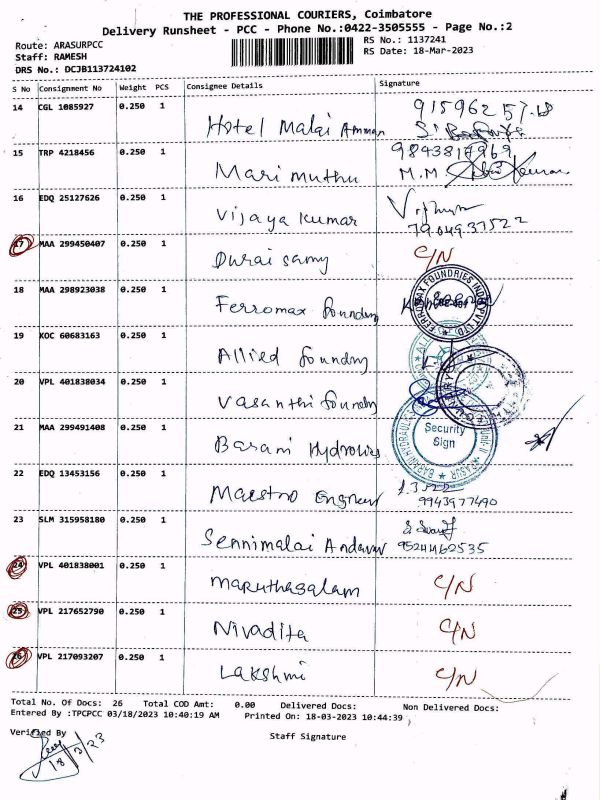 THE PROFESSIONAL COURIERS, Coimbatore
Delivery Runsheet - PCC - Phone No.:0422-3505555 - Page No.:2
Route: ARASURPCC
RS No.: 1137241
Staff: RAMESH
RS Date: 18-Mar-2023
DRS No.: DCJB113724102
S No Consignment No Weight PCS Consignee Details Signature
14 CGL 1085927 0.250 1 Hotel Malai Amman
15 TRP 4218456 0.250 1 Mari muthu 98438 M.M
16 EDQ 25127626 0.250 1 Vijaya kumar 7904937522
17 MAA 299450407 0.250 1 Durai samy C/N
18 MAA 298923038 0.250 1 Ferromax foundry
FERROMAX FOUNDRIES INDIA PVT LTD
19 KOC 60683163 0.250 1 Allied foundry
20 VPL 401838034 0.250 1 Vasanthi foundry
21 MAA 299491408 0.250 1 Barani Hydrolics
Security
Sign
22 EDQ 13453156 0.250 1 Maestro Engneer 9943977490
23 SLM 315958180 0.250 1 Sennimalai Andavar 9524462535
24 VPL 401838001 0.250 1 maruthasalam C/N
25 VPL 217652790 0.250 1 Nivadita C/N
26 VPL 217093207 0.250 1 Lakshmi C/N
Total No. Of Docs: 26 Total COD Amt: 0.00 Delivered Docs: Non Delivered Docs:
Entered By :TPCPCC 03/18/2023 10:40:19 AM Printed On: 18-03-2023 10:44:39
Verified By
Staff Signature
18/3/23